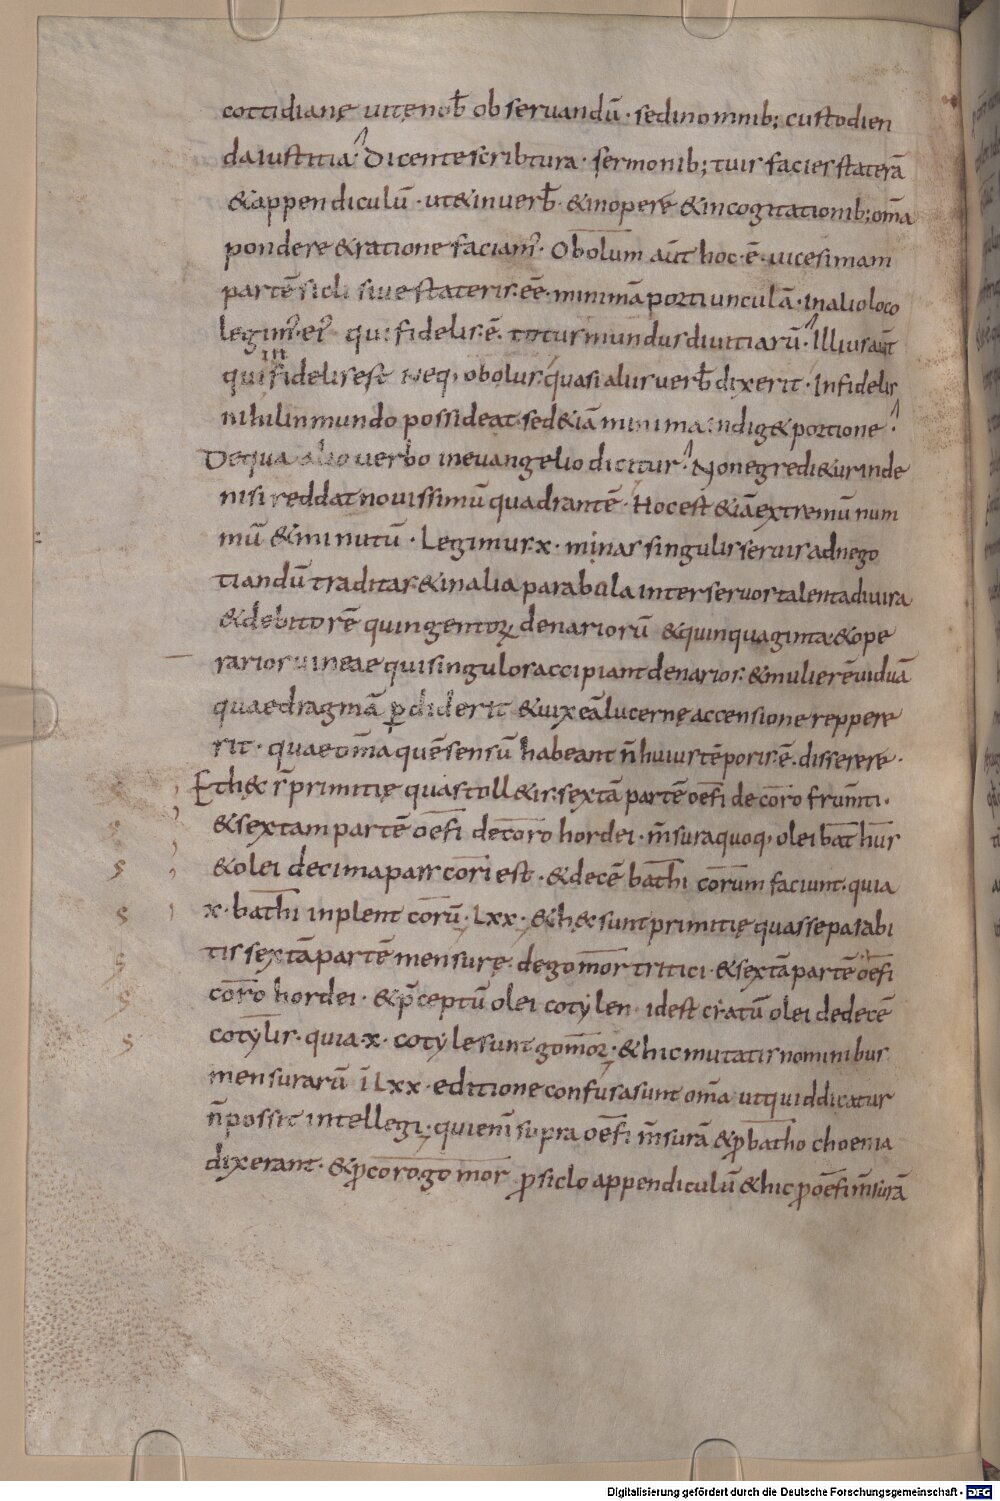 cottidianę uitę nob̄ obseruandū · sed in omnib; custodien
da iustitia · Dicente scribtura · sermonib; tuis facies staterā
& appendiculū · ut & in uerb̄ · & in opere & in cogitationib; om̄a
pondere & ratione faciam᷒ · Obolum aūt hoc · ē · uicesimam
partē sicli siue stateris · eē · minimā portiunculā · In alio loco
legim᷒ · ei᷒ qui fidelis · ē · totus mundus diuitiarū · Illius aūt
qui infidelis est neq; obolus · quasi aliis uerb̄ dixerit · Infidelis
nihil in mundo possideat · sed & iā minima indig& portione ·
De qua alio uerbo in euangelio dicitur · Non egredi&ur inde
nisi reddat nouissimū quadrantē · Hoc est &iā extremū num
mū & minutū · Legimus · x · minas singulis seruis ad nego
tiandū traditas & in alia parabula inter seruos talenta diuisa
& debitorē quingentoꝝ denariorū & quinquaginta · & ope
rarios uineae qui singulos accipiant denarios · & mulierē uiduā
quae dragmā ꝑdiderit & uix eā lucernę accensione reppere
rit · quae om̄a quē sensū habeant n̄ huius tēporis · ē · disserere ·
Et hę s̄t primitię quas toll&is · sextā partē oefi de coro frum̄ti ·
& sextam partē oefi de coro hordei · m̄sura quoq; olei bat huīs
& olei decima pars cori est · & decē bathi corum faciunt · quia
x · bathi inplent corū · Lxx · & hę sunt primitię quas separabi
tis sextā partē mensurę de gomor tritici · & sextā partē oefi
coro hordei · & p̄ceptū olei cotylen · id est cẏatū olei de decē
cotylis · quia · x · cotyle sunt gomoꝝ · & hic mutatis nominibus
mensurarū ī Lxx · editione confusa sunt om̄a ut quid dicatur
n̄ possit intellegi · qui enim̄ supra oefi m̄surā & ꝓ batho choenia
dixerant · & ꝓ coro gomor ꝓ siclo appendiculū & hic ꝓ oefi m̄surā
Digitalisierung gefördert durch die Deutsche Forschungsgemeinschaft - DFG